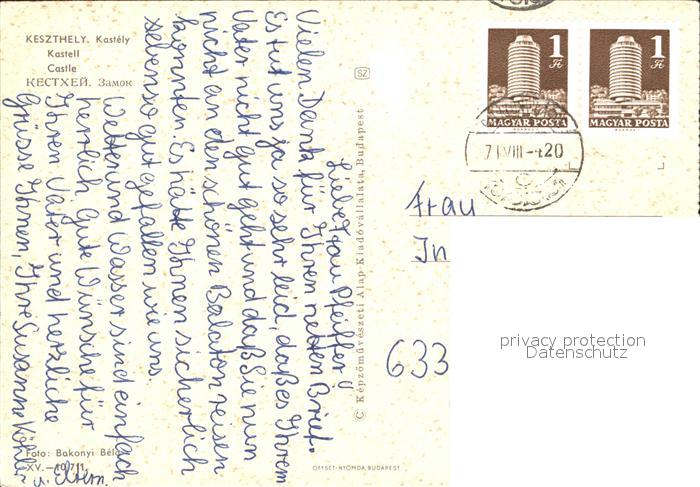 KESZTHELY. Kastély
Kastell
Castle
КЕСТХЕЙ. Замок
Liebe Frau Pfeiffer!
Vielen Dank für Ihren netten Brief.
Es tut uns ja so sehr leid, daß es Ihrem
Vater nicht gut geht und daß Sie nun
nicht an den schönen Balaton reisen
konnten. Es hätte Ihnen sicherlich
ebenso gut gefallen wie uns.
Wetter und Wasser sind einfach
herrlich. Gute Wünsche für
Ihren Vater und herzliche
Grüsse Ihnen, Ihre Susanne Köhler
u. Eltern.
Foto: Bakonyi Béla
XV.—10/711
SZ
© Képzőművészeti Alap Kiadóvállalata, Budapest
OFFSET-NYOMDA, BUDAPEST
1 Ft
MAGYAR POSTA
1 Ft
MAGYAR POSTA
71 VIII -4 20
C
Frau
In
633
privacy protection
Datenschutz